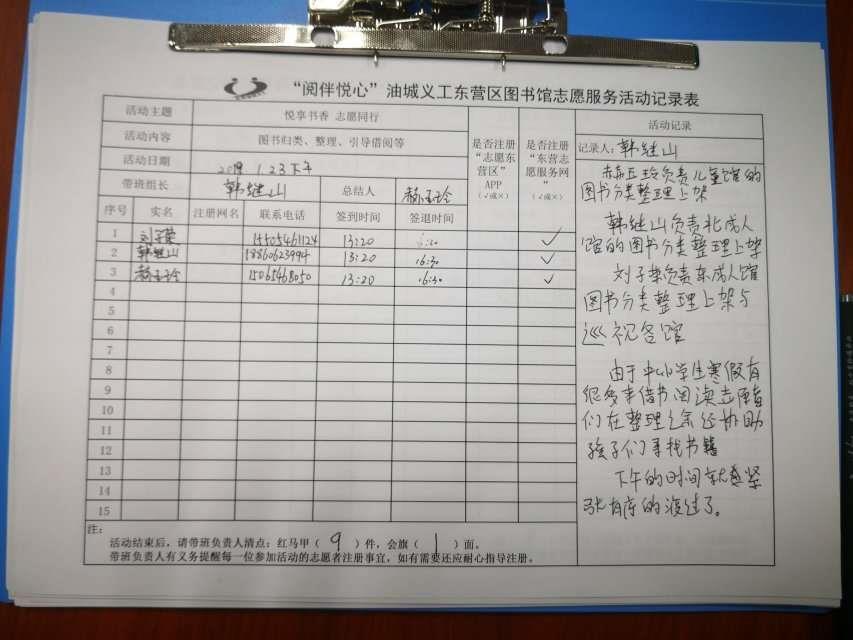 “阅伴悦心”油城义工东营区图书馆志愿服务活动记录表
活动主题 悦享书香 志愿同行
活动内容 图书归类、整理、引导借阅等
活动日期 2019 1.23下午
带班组长 韩继山 总结人 郝玉玲
是否注册“志愿东营区”APP（√或×）
是否注册“东营志愿服务网”（√或×）
序号 实名 注册网名 联系电话 签到时间 签退时间
1 刘子荣 15505461124 13:20 √
2 韩继山 18860623994 13:20 16:30 √
3 郝玉玲 15065468050 13:20 16:30 √
4
5
6
7
8
9
10
11
12
13
14
15
活动记录
记录人：韩继山
郝玉玲负责儿童馆的
图书分类整理上架
韩继山负责北成人
馆的图书分类整理上架
刘子荣负责东成人馆
图书分类整理上架与
巡视各馆
由于中小学生寒假有
很多来借书阅读志愿者
们在整理之余还协助
孩子们寻找书籍
下午的时间就在紧
张有序的渡过了。
注：
活动结束后，请带班负责人清点：红马甲（ 9 ）件，会旗（ 1 ）面。
带班负责人有义务提醒每一位参加活动的志愿者注册事宜，如有需要还应耐心指导注册。